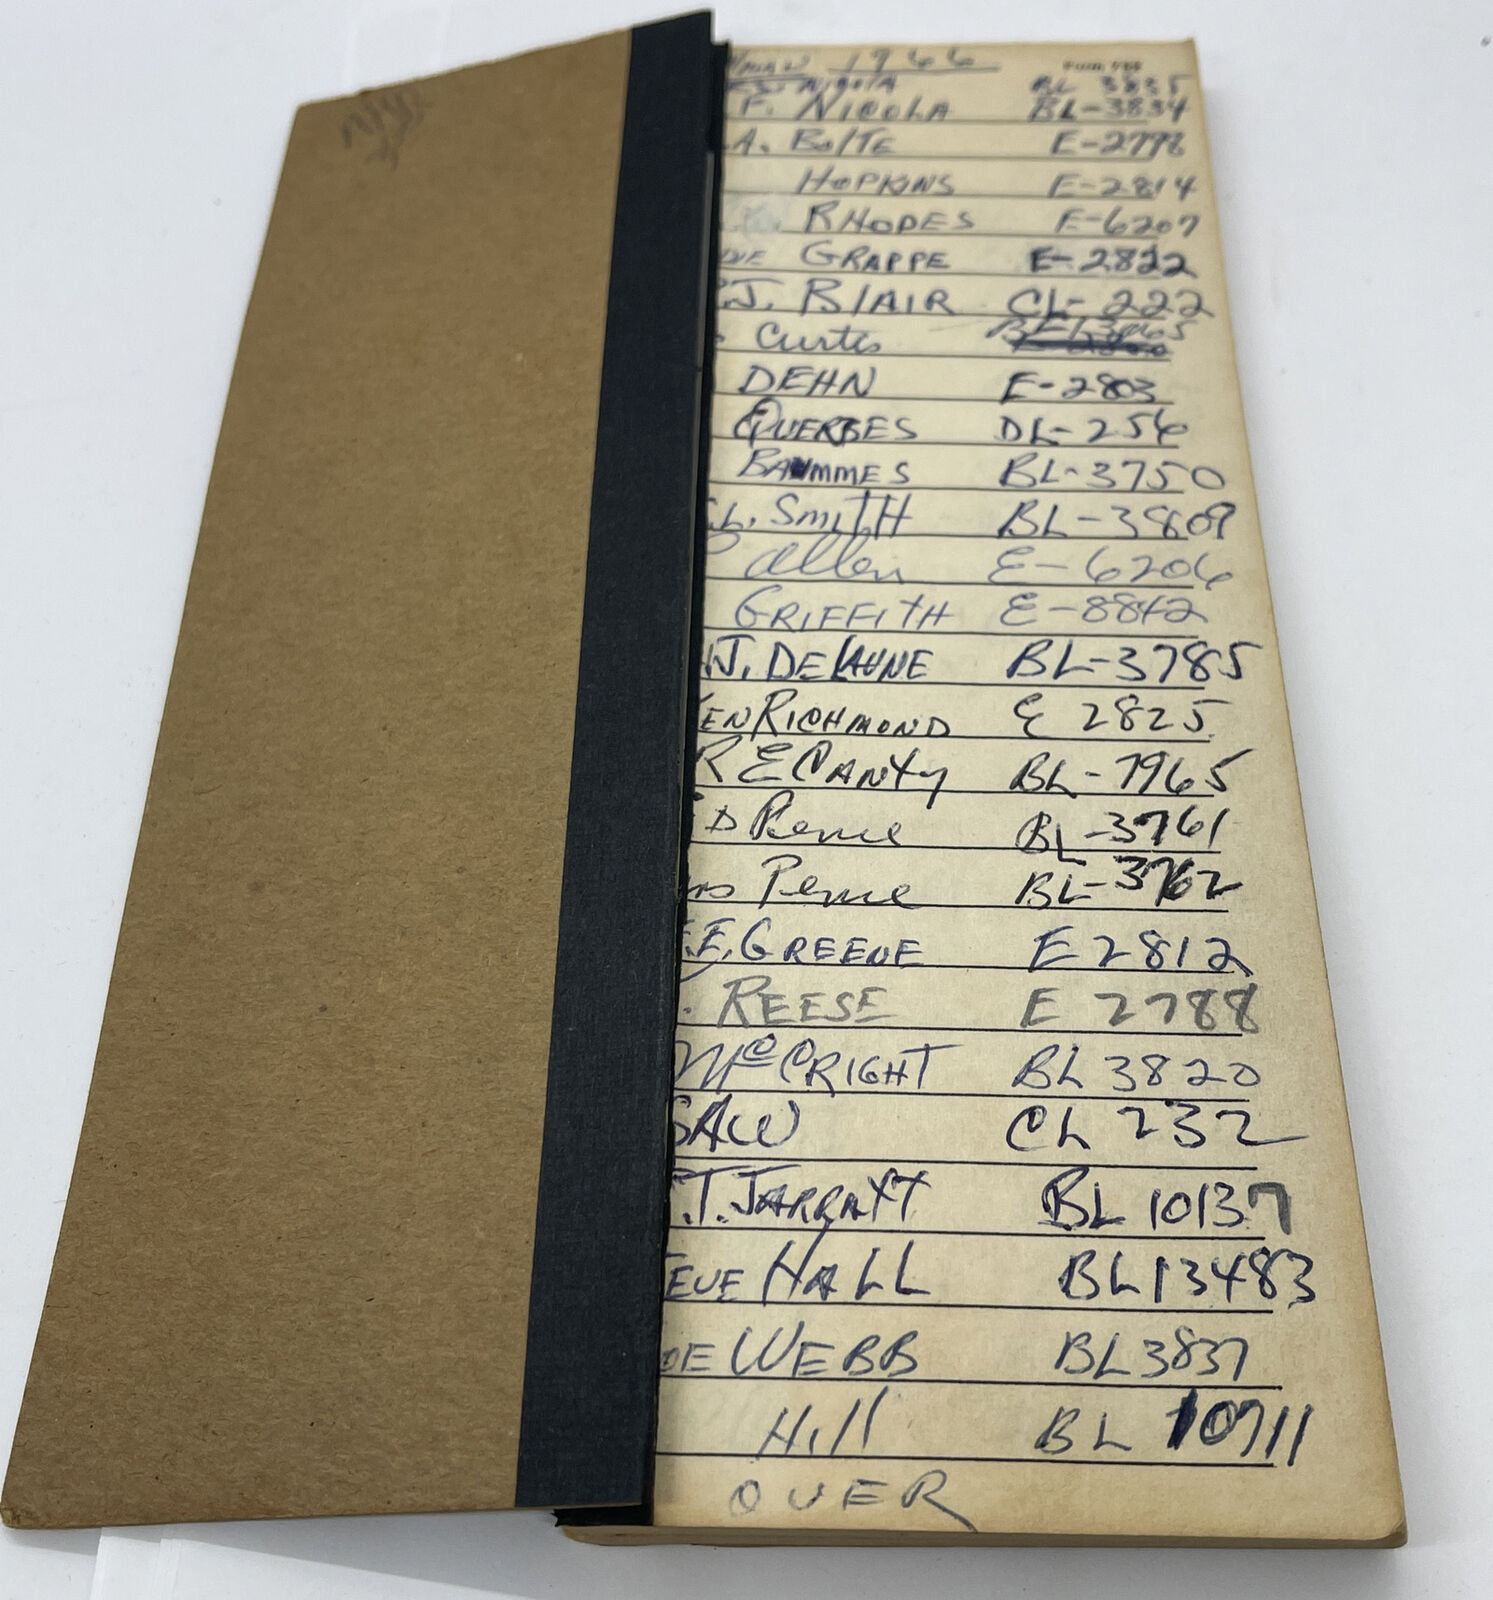 1966 Form
BL 3835
F. NICOLA BL-3834
A. BOLTE E-2798
HOPKINS E-2814
RHODES E-6207
GRAPPE E-2822
J. BLAIR CL-222
Curtis
DEHN E-2803
QUERBES DL-256
BAUMMES BL-3750
L. SMITH BL-3809
Allen E-6206
GRIFFITH E-8842
J. DELAUNE BL-3785
EN RICHMOND E 2825
R E CANTY BL-7965
D Pence BL-3761
Pence BL-3762
E. GREENE E 2812
REESE E 2788
McCRIGHT BL 3820
SAW CL 232
T. JARRATT BL 10137
EVE HALL BL 13483
OE WEBB BL 3837
Hill BL 10711
OVER